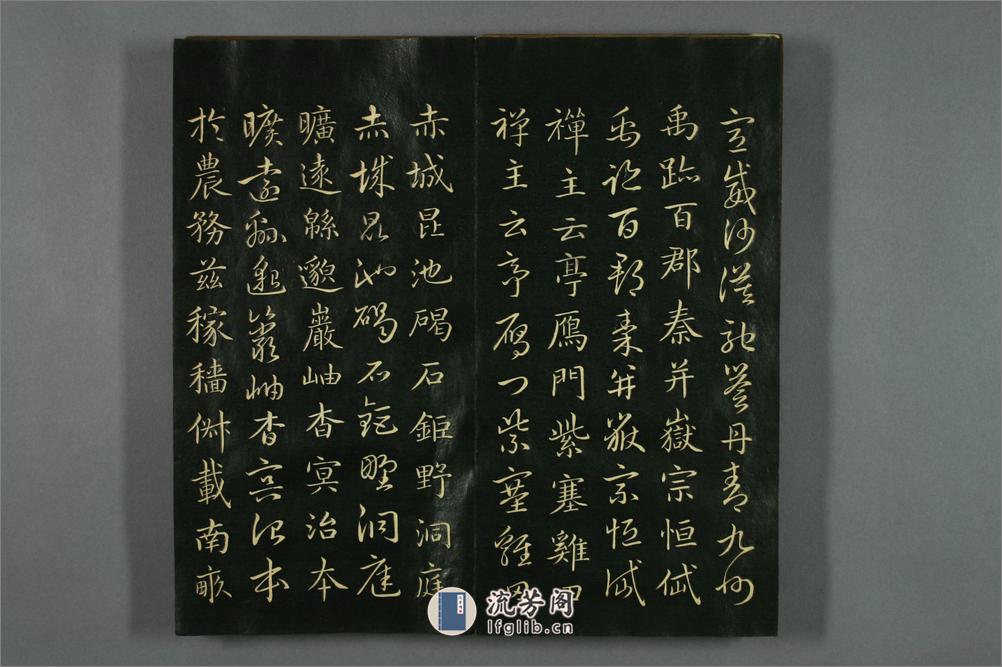 宣威沙漠馳譽丹青九州
禹跡百郡秦并嶽宗恒岱
禹跡百郡秦并嶽宗恒岱
禪主云亭鴈門紫塞雞田
禪主云亭鴈門紫塞雞田
赤城昆池碣石鉅野洞庭
赤城昆池碣石鉅野洞庭
曠遠緜邈巖岫杳冥治本
曠遠緜邈巖岫杳冥治本
於農務茲稼穡俶載南畝
流芳阁
lfglib.cn